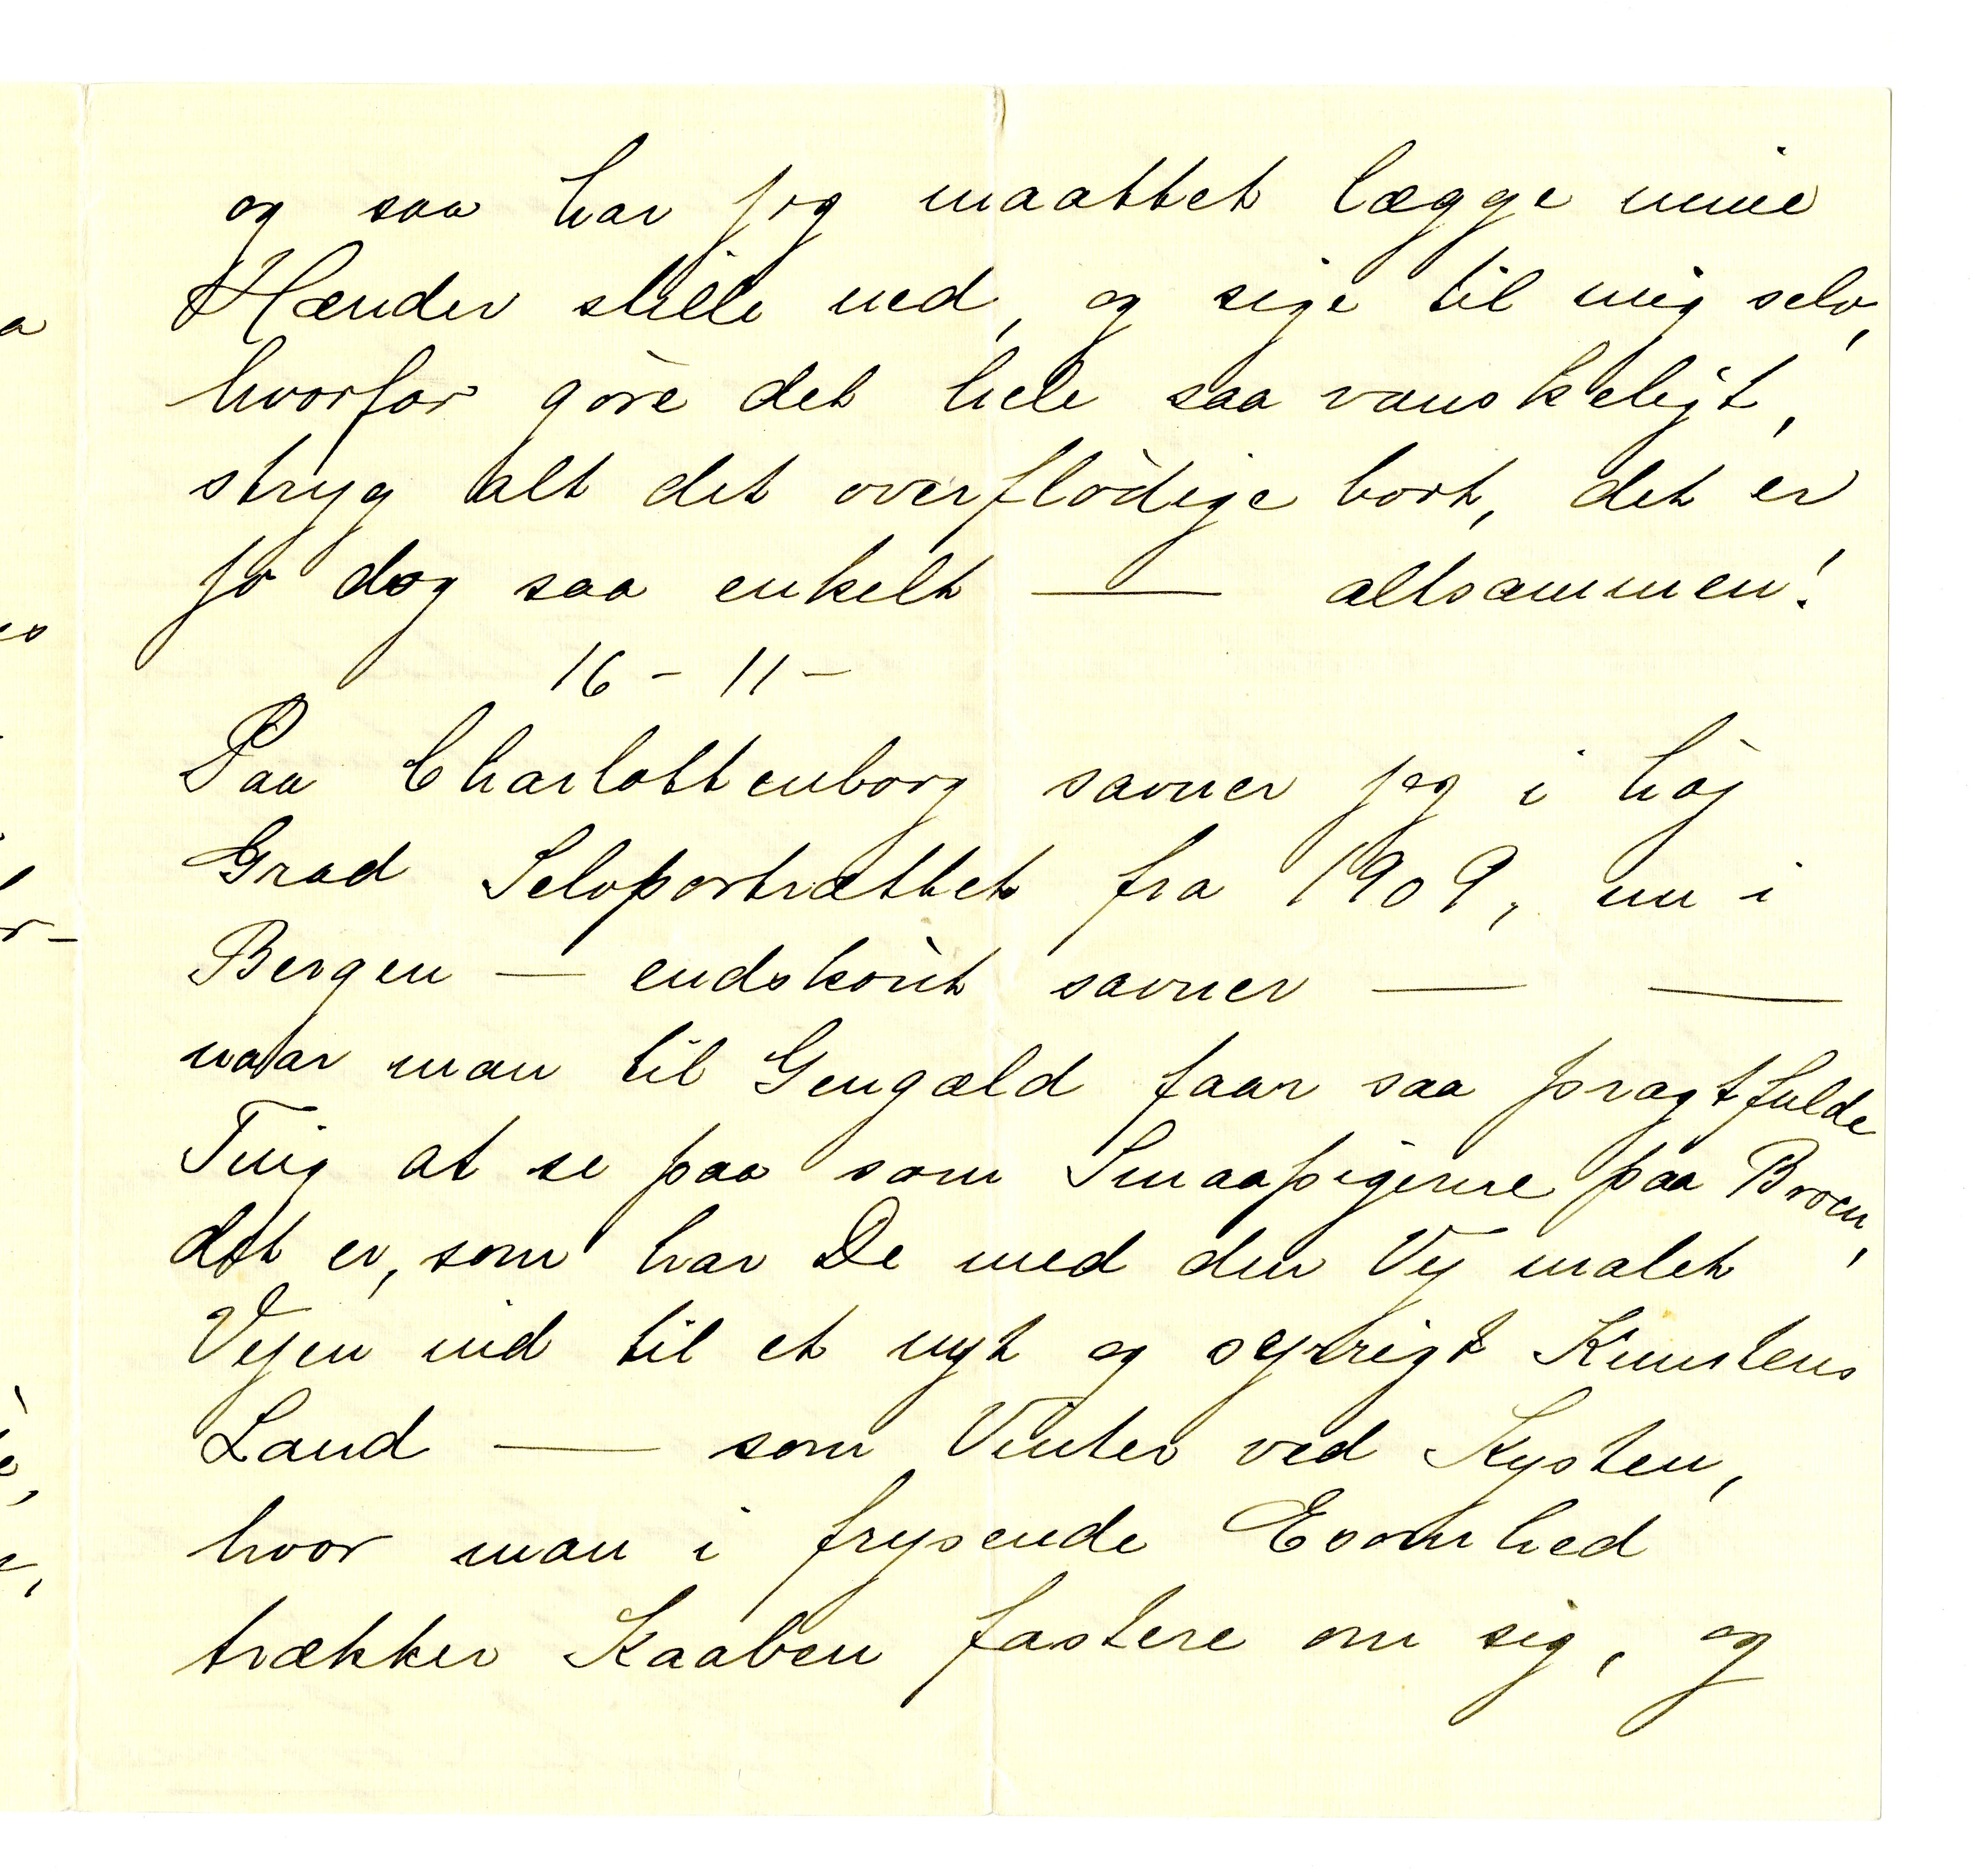 og saa har jeg maattet lægge mine
Hænder stille ned, og sige til mig selv,
hvorfor göre det hele saa vanskeligt,
stryg alt det overflödige bort, det er
jo dog saa enkelt — altsammen!
16 - 11 -
Paa Charlottenborg savner jeg i höj
Grad Selvportrættet fra 1909, nu i
Bergen — endskönt savner — —
naar man til Gengæld faar saa pragtfulde
Ting at se paa som Smaapigerne paa Broen,
det er, som har De med den Vej malet
Vejen ind til et nyt og sejrrigt Kunstens
Land — som Vinter ved Kysten,
hvor man i frysende Ensomhed
trækker Kaaben fastere om sig, og